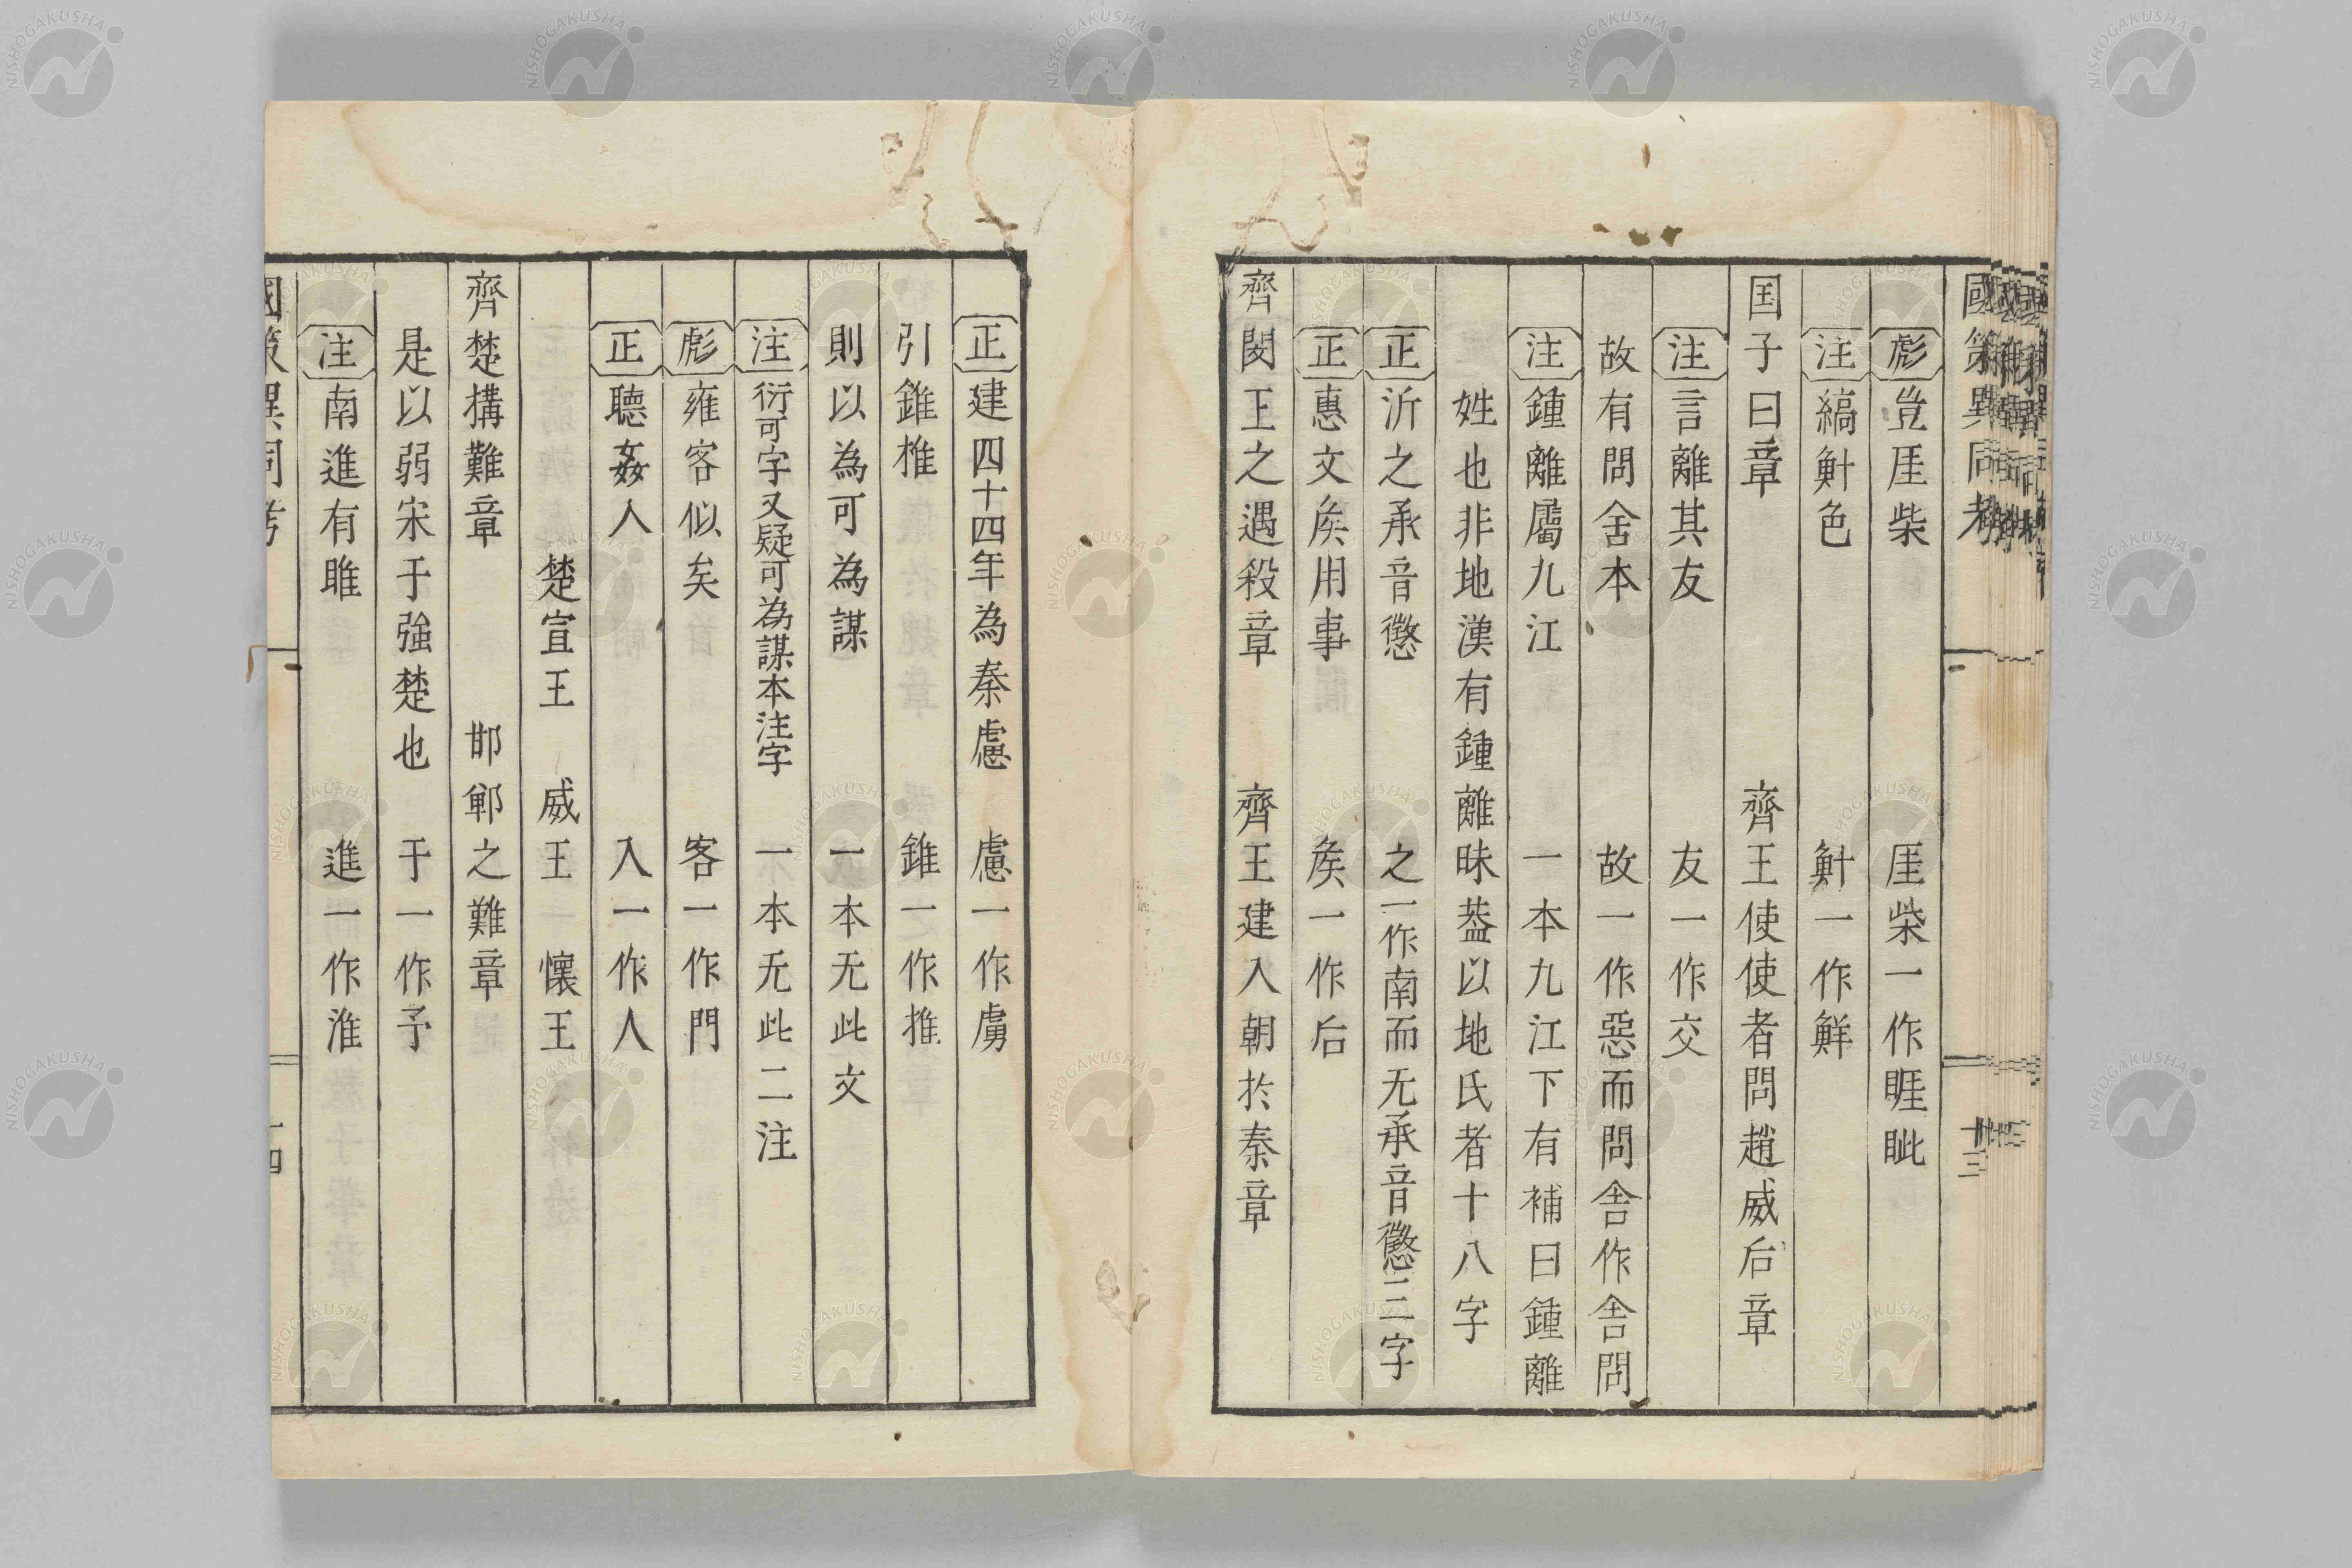 國策異同考
十三
彪 豈厓柴 厓柴一作睚眦
注 縞魪色 魪一作鮮
国子曰章 齊王使使者問趙威后章
注 言離其友 友一作交
故有問舍本 故一作惡而問舍作舍問
注 鍾離屬九江 一本九江下有補曰鍾離
姓也非地漢有鍾離昧葢以地氏者十八字
正 沂之承音懲 之一作南而无承音懲三字
正 惠文矦用事 矦一作后
齊閔王之遇殺章 齊王建入朝於秦章
正 建四十四年為秦慮 慮一作虜
引錐椎 錐一作推
則以為可為謀 一本无此文
注 衍可字又疑可為謀本注字 一本无此二注
彪 雍客似矣 客一作門
正 聽姦入 入一作人
楚宣王 威王 懷王
齊楚搆難章 邯鄲之難章
是以弱宋于強楚也 于一作予
注 南進有睢 進一作淮
國策異同考
十四
NISHOGAKUSHA